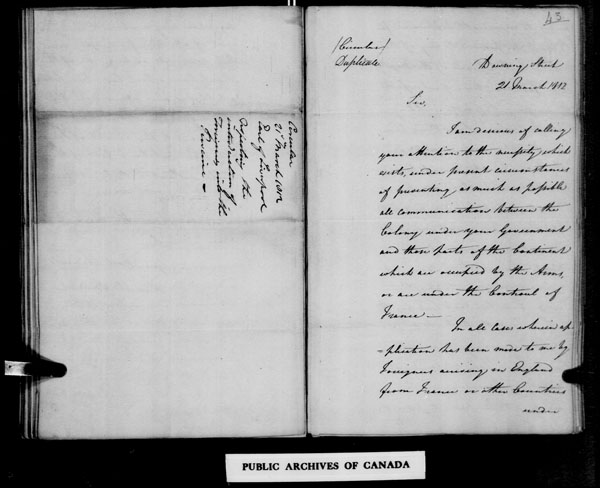 Circular
21st March 1812
Earl of Liverpool
Respecting the
introduction of
Foreigners into the
Province
43
(Circular)
Duplicate
Downing Street
21 March 1812
Sir,
I am desirous of calling
your attention to the necessity which
exists, under present circumstances
of preventing as much as possible
all communication between the
Colony under your Government
and those parts of the Continent
which are occupied by the Arms,
or are under the Controul of
France —
In all cases wherein ap
=plication has been made to me by
Foreigners arriving in England
from France or other Countries
under
PUBLIC ARCHIVES OF CANADA